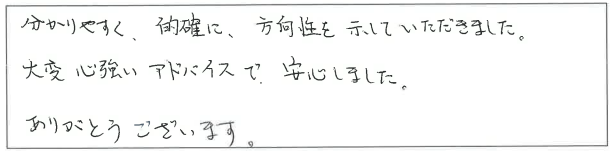 分かりやすく、的確に、方向性を示していただきました。
大変心強いアドバイスで、安心しました。
ありがとうございます。